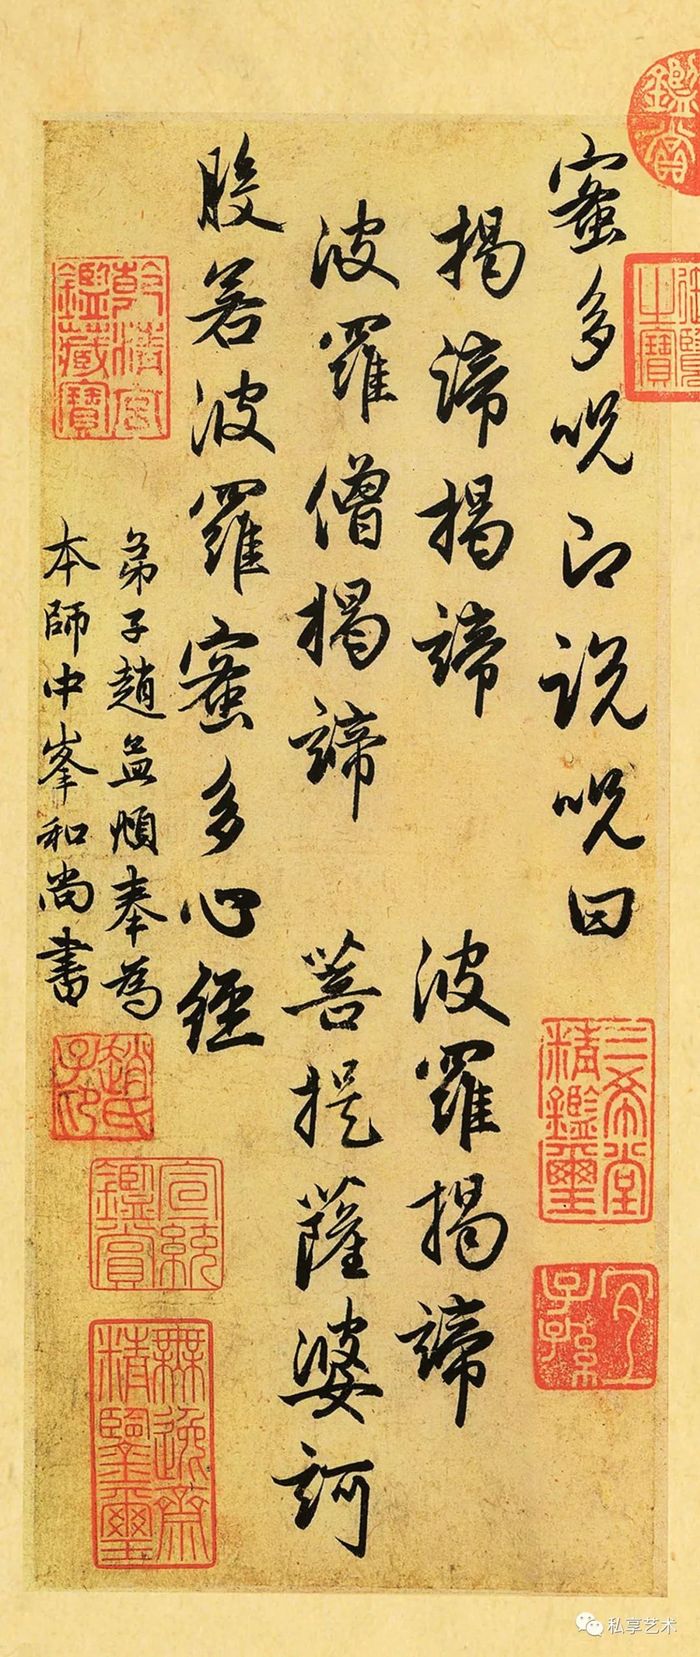 蜜多呪即說呪曰
揭諦揭諦 波羅揭諦
波羅僧揭諦 菩提薩婆訶
般若波羅蜜多心經
弟子趙孟頫奉為
本師中峯和尚書
鑑賞
御覽之寶
三希堂精鑑璽
宜子孫
乾清宮鑑藏寶
趙氏子昂
宣統鑑賞
無逸齋精鑒璽
私享艺术